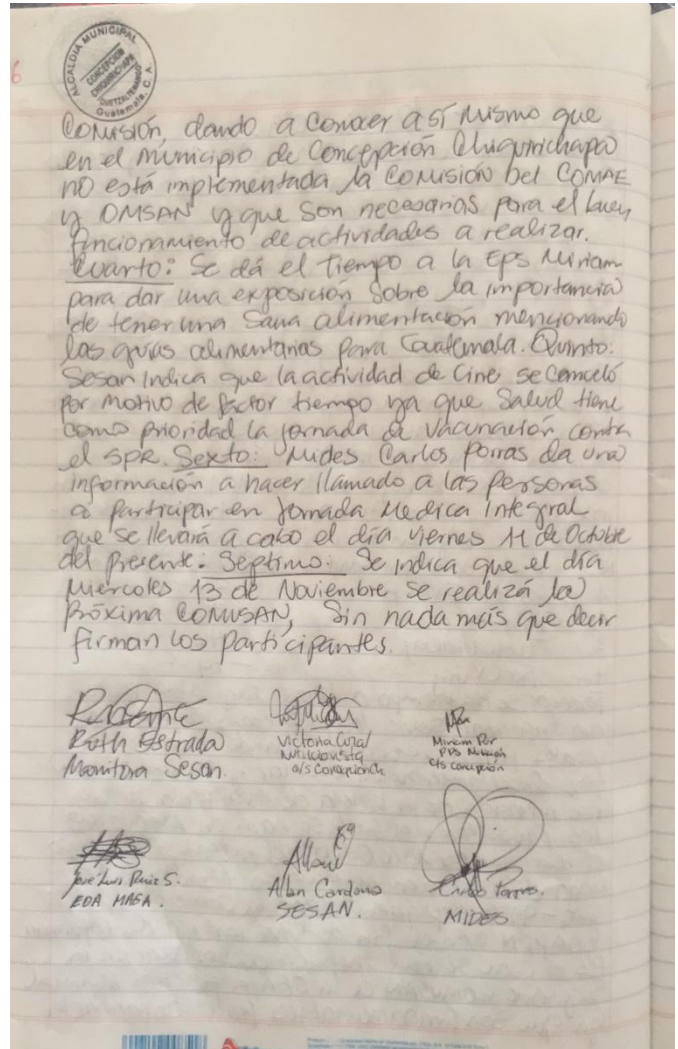 ALCALDIA MUNICIPAL
CONCEPCION
CHIQUIRICHAPA
QUETZALTENANGO
Guatemala, C. A.
6
Comisión, dando a conocer así mismo que
en el municipio de Concepción Chiquirichapa
no está implementada la Comisión del COMAE
y OMSAN y que son necesarias para el buen
funcionamiento de actividades a realizar.
Cuarto: Se dá el tiempo a la Eps Miriam
para dar una exposición sobre la importancia
de tener una sana alimentación mencionando
las guias alimentarias para Guatemala. Quinto:
Sesan Indica que la actividad de Cine se canceló
por motivo de factor tiempo ya que Salud tiene
como prioridad la jornada de vacunación contra
el SPR. Sexto: Mides Carlos Porras da una
información a hacer llamado a las personas
a participar en Jornada Medica Integral
que se llevará a cabo el día viernes 11 de Octubre
del presente. Septimo: Se indica que el día
Miercoles 13 de Noviembre se realizá la
Próxima COMUSAN, Sin nada más que decir
firman los participantes.
Ruth Estrada
Monitora Sesan.
Victoria
Nutricionista
c/s Concepción Ch.
Miriam Por
EPS Nutrición
c/s Concepción
José Luis Ruiz S.
EDA MAGA.
Allan Cardona
SESAN.
Carlos Porras.
MIDES